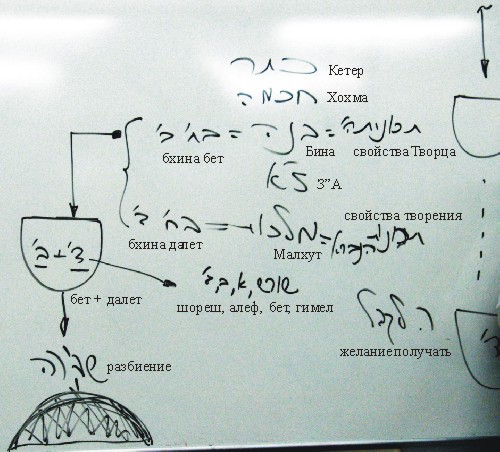 כתר
Кетер
חכמה
Хохма
תכונות ה' = בינה = בח' ב'
бхина бет Бина свойства Творца
ז"א
З"А
свойства творения
תכונות הנברא = מלכות = בח' ד'
бхина далет Малхут
ד' + ב'
бет + далет
שורש, א, ב, ג'
шореш, алеф, бет, гимел
ר. לקבל
желание получать
שבירה
разбиение